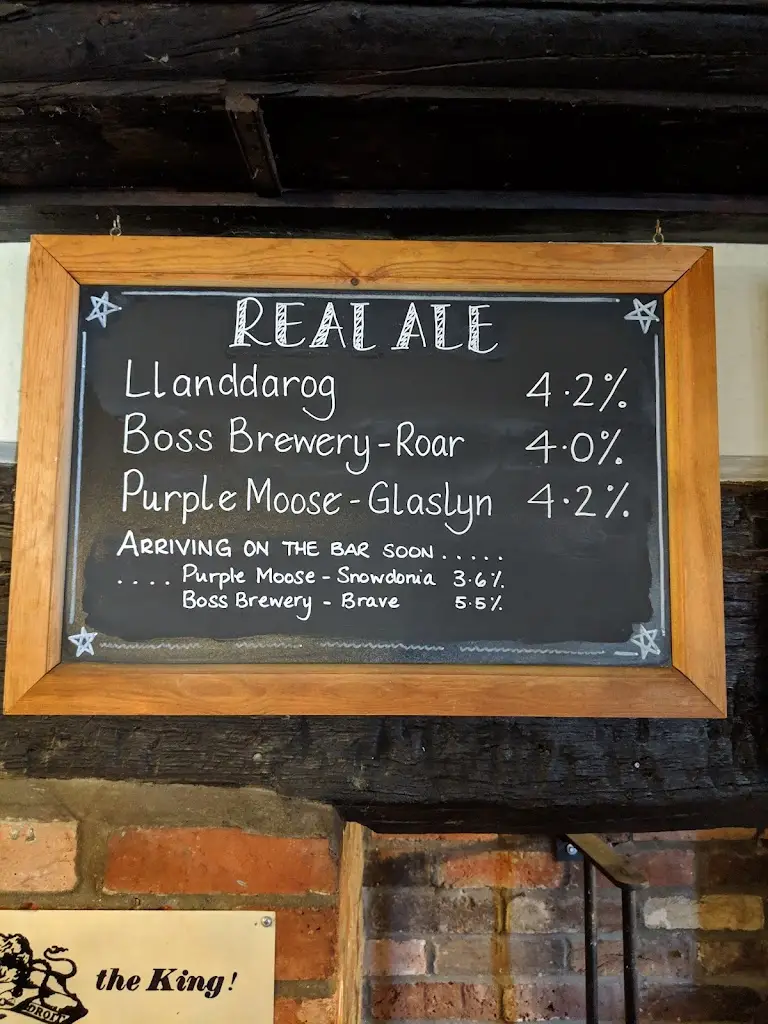 REAL ALE
Llanddarog 4.2%
Boss Brewery-Roar 4.0%
Purple Moose-Glaslyn 4.2%
ARRIVING ON THE BAR SOON.....
....Purple Moose-Snowdonia 3.6%
Boss Brewery - Brave 5.5%
the King!
DROIT